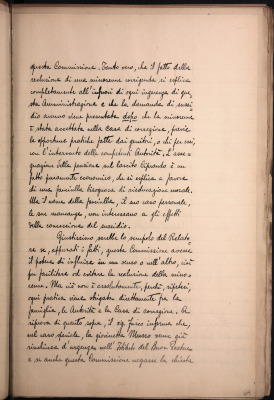 questa Commissione. Tanto vero, che il fatto della
reclusione di una minorenne corrigenda, si esplica
completamente all'infuori di ogni ingerenza di que-
sta Amministrazione e che la domanda di sussi
dio ancora viene presentata dopo che la minorenne
è stata accettata nella Casa di correzione, previe
le opportune pratiche fatte dai genitori, o chi per essi,
con l'intervento delle competenti Autorità. L'asse-
gnazione della pensione sul lascito è un
fatto puramente economico, che si esplica a favore
di una fanciulla bisognosa di rieducazione morale.
Ma il nome della fanciulla, il suo caso personale,
le sue mancanze, non interessano a gli effetti
nella concessione del sussidio.
Giustissimo sarebbe lo scrupolo del Relato
re se, effettuati i fatti, questa Commissione avesse
il potere di influire in un senso o nell'altro, così
da facilitare od evitare la reclusione della mino-
renne. Ma ciò non è assolutamente, perché, ripeto,
ogni pratica viene sbrigata direttamente fra la
famiglia, le Autorità e la Casa di correzione. A
riprova di quanto sopra, il sig. informa che,
nel caso speciale, la giovinetta Musso venne già
rinchiusa d'urgenza nell'Istituto del Buon Pastore
e se anche questa Commissione negasse la chiesta